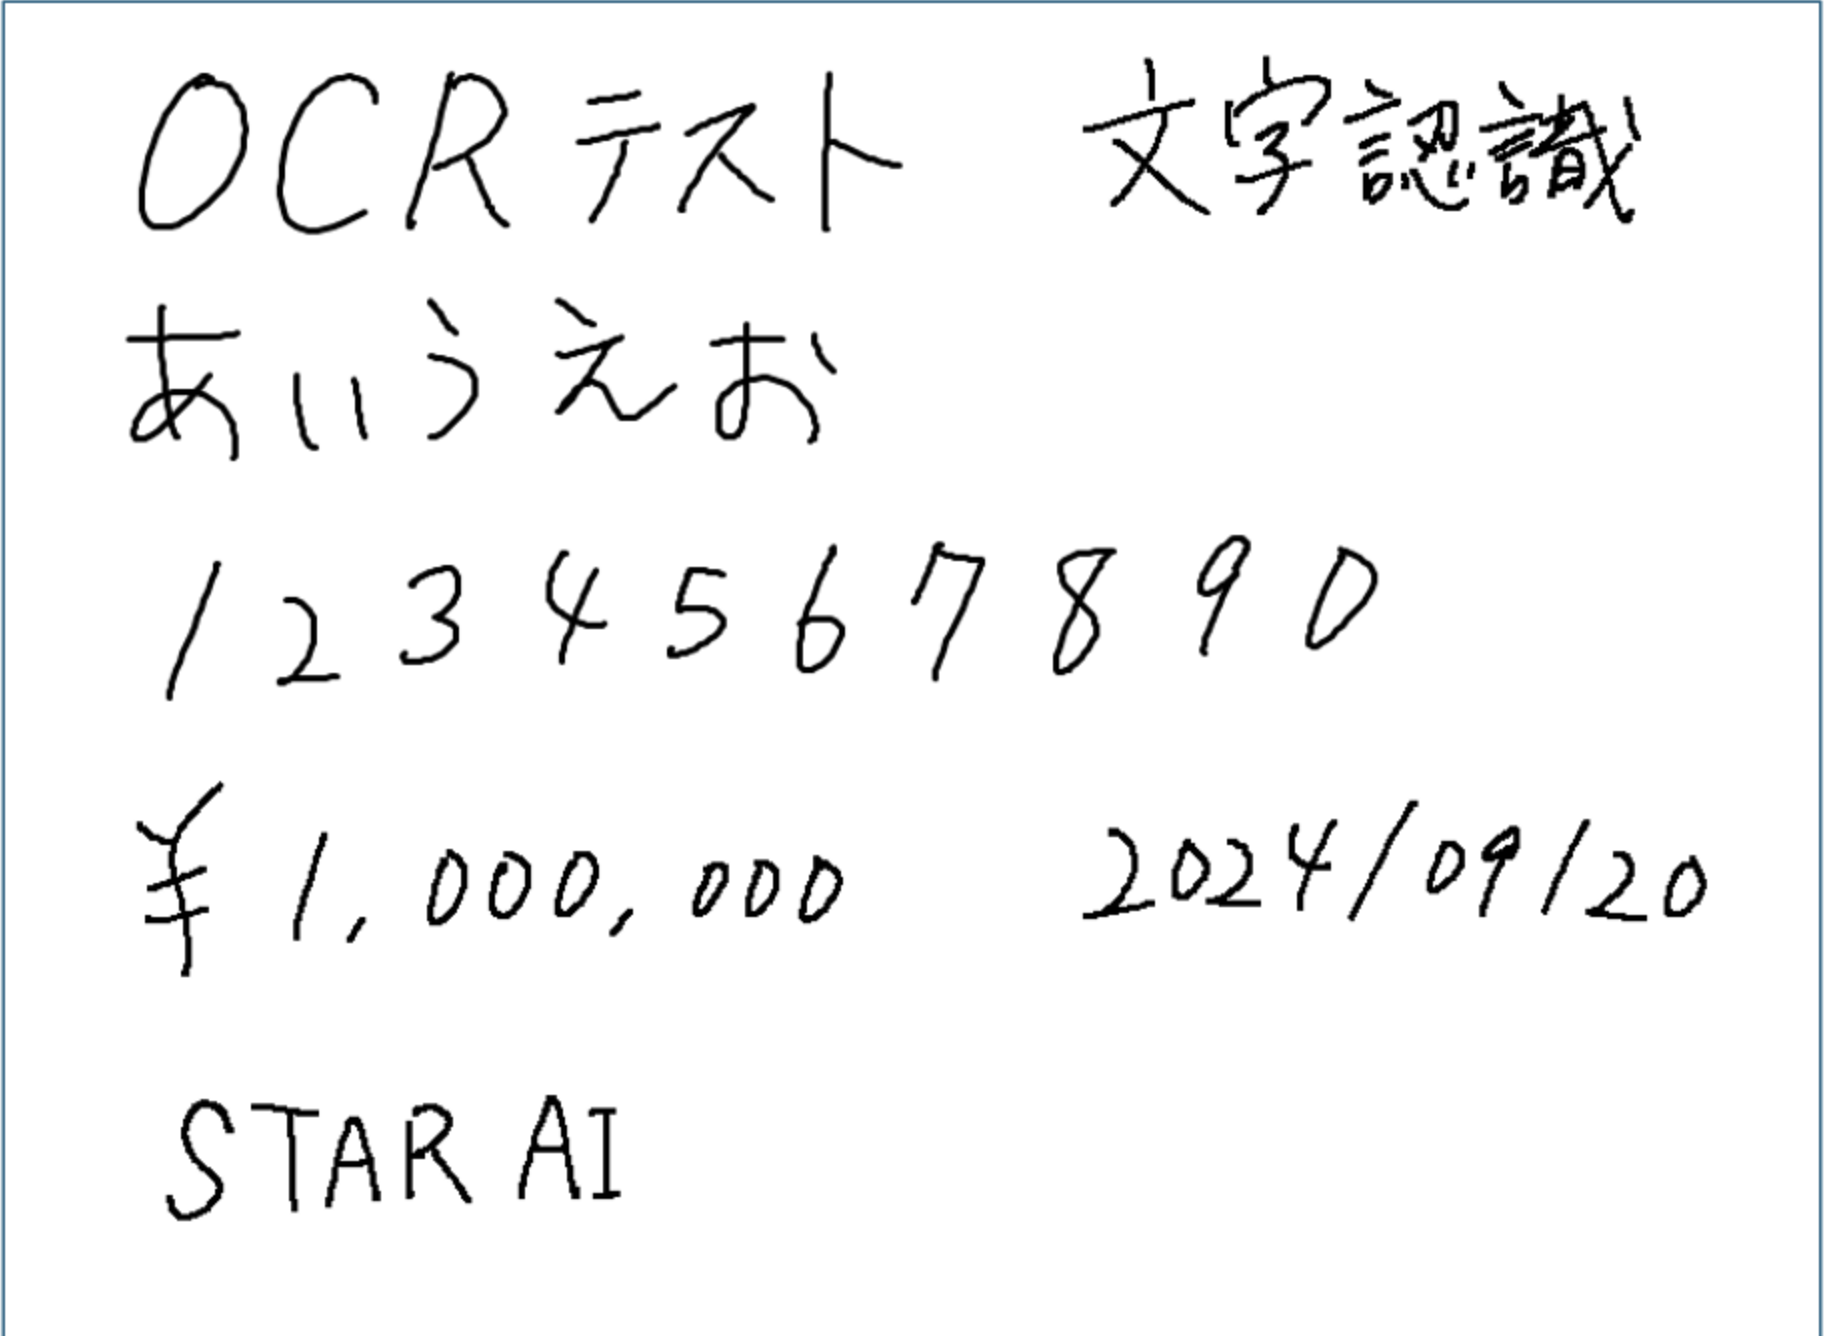 OCRテスト 文字認識
あいうえお
1 2 3 4 5 6 7 8 9 0
¥1,000,000 2024/09/20
STAR AI